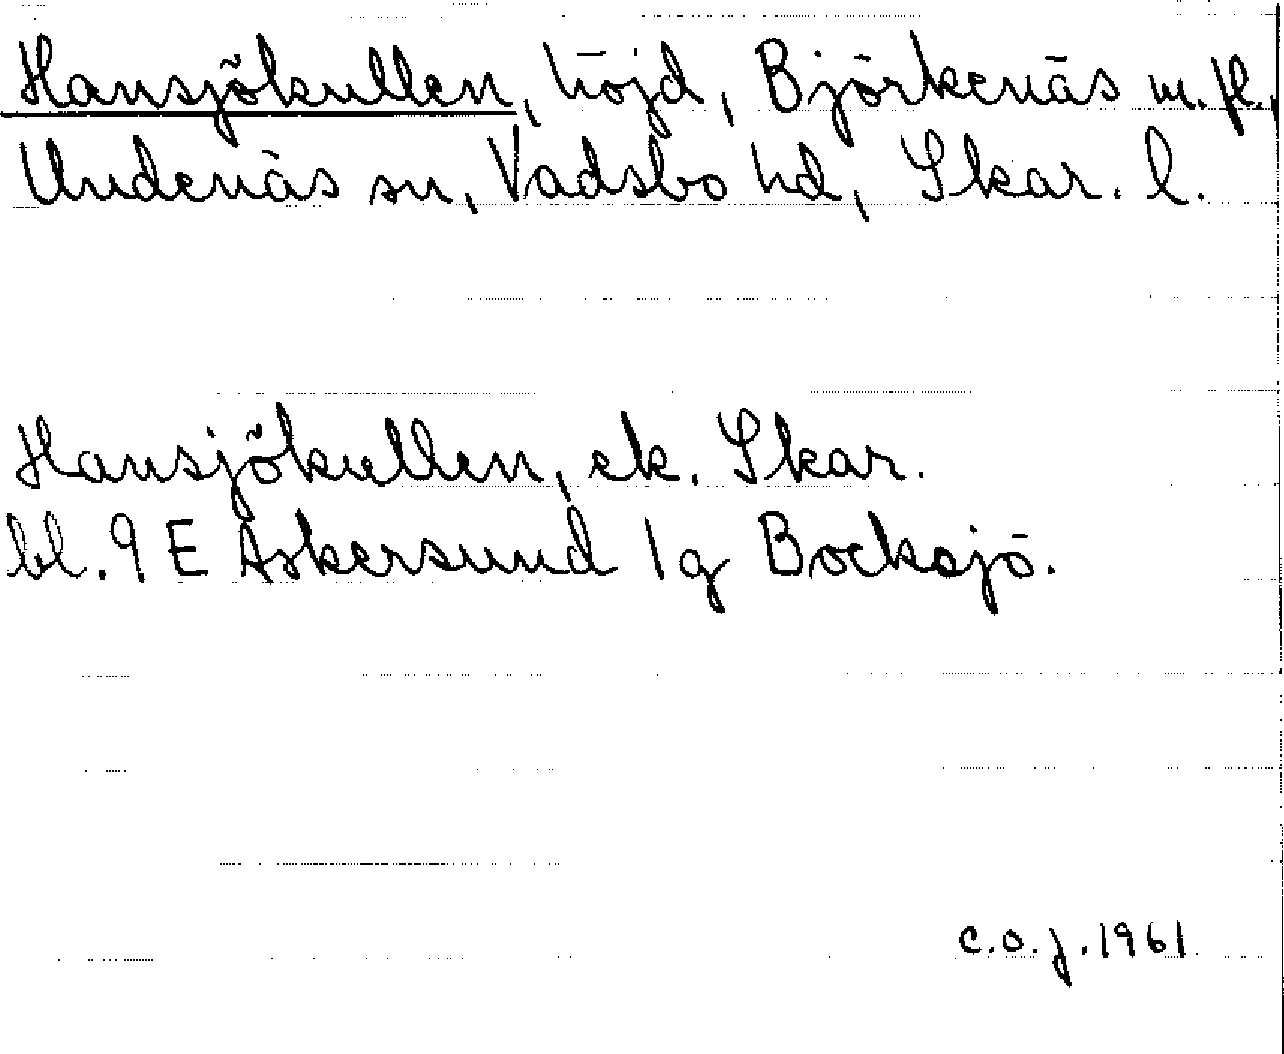 Hansjökullen, höjd, Björkenäs m.fl.,
Undenäs sn, Vadsbo hd, Skar. l.
Hansjökullen, ek. Skar.
bl. 9 E Askersund 1g Bocksjö.
C.O.J. 1961